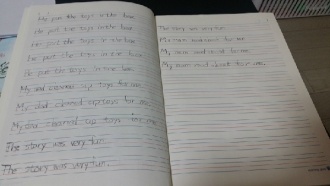 He put the toys in the box.
He put the toys in the box.
He put the toys in the box.
He put the toys in the box.
He put the toys in the box.
My dad cleaned up toys for me.
My dad cleaned up toys for me.
My dad cleaned up toys for me.
The story was very fun.
The story was very fun.
The story was very fun.
My mom read book to me.
My mom read book to me.
My mom read book to me.